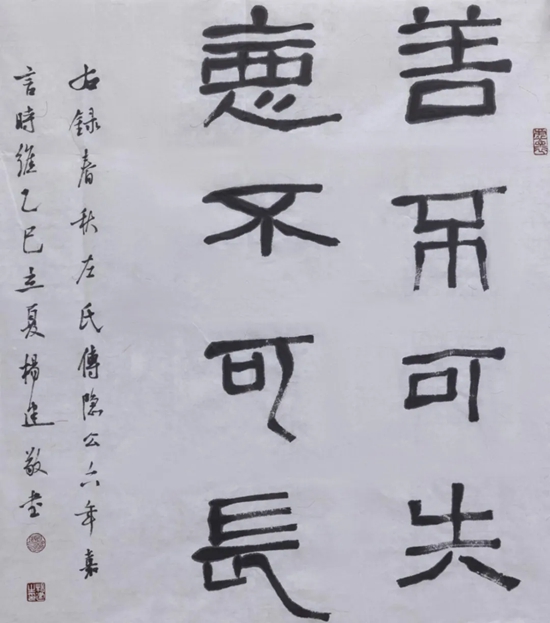 善不可失
惡不可長
右録春秋左氏傳隐公六年嘉
言時維乙巳立夏楊建敬書